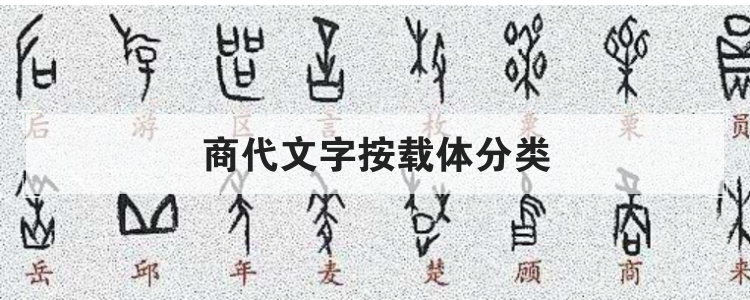 后 游 区 言 枚 栗 栗 员
商代文字按载体分类
岳 邱 年 麦 楚 顾 商 来